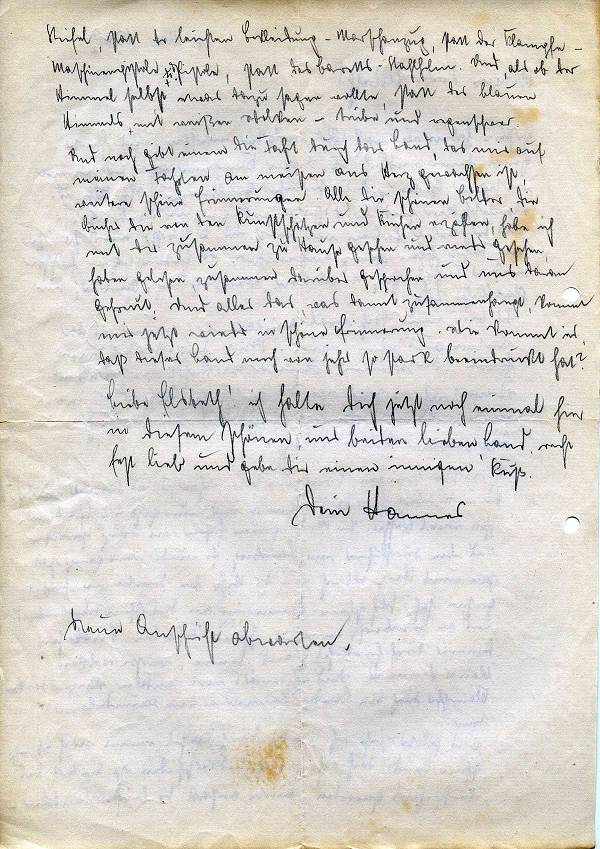 Stiefel, statt der leichten Bekleidung – Marschanzug, statt der Klampfe –
Maschinenpistole u. Pistole, statt des Baretts – Stahlhelm. Und, als ob der
Himmel selbst etwas dazu sagen wollte, statt des blauen
Himmels mit weißen Wolken – trübe und regenschwer.
Und noch gibt einem die Fahrt durch das Land, das mir auf
meinen Fahrten am meisten ans Herz gewachsen ist,
weitere schöne Erinnerungen. Alle die schönen Bilder, die
Bücher die von den Kunstschätzen und Kirchen erzählen, habe ich
mit Dir zusammen zu Hause gesehen und wir
haben gelesen, zusammen darüber gesprochen und uns daran
gefreut. Und alles das, was damit zusammenhängt, kommt
mir jetzt wieder in schöne Erinnerung. Wie kommt es,
daß dieses Land mich von jeher so stark beeindruckt hat?
Liebe Elsbeth! ich halte Dich jetzt noch einmal hier
in diesem schönen, uns beiden lieben Land, recht
fest lieb und gebe Dir einen innigen Kuß.
Dein Hannes
Neue Anschrift abwarten.